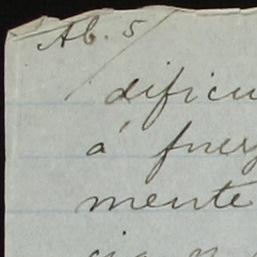 Ab. 5
dificu
á fuerz
mente